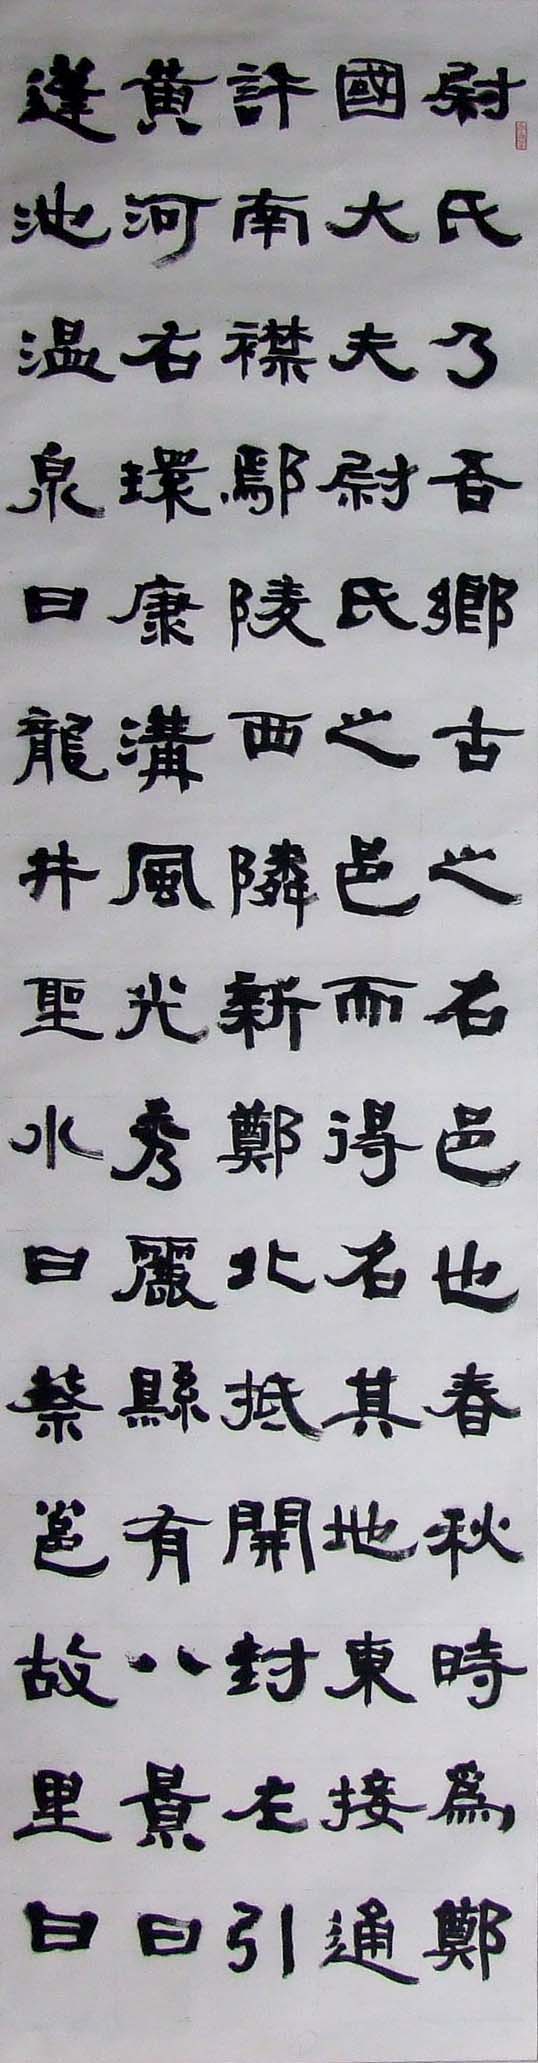 尉氏乃吾鄉古之名邑也春秋時爲鄭
國大夫尉氏之邑而得名其地東接通
許南襟鄢陵西隣新鄭北抵開封左引
黃河右環康溝風光秀麗縣有八景曰
蓬池溫泉曰龍井聖水曰蔡邕故里曰